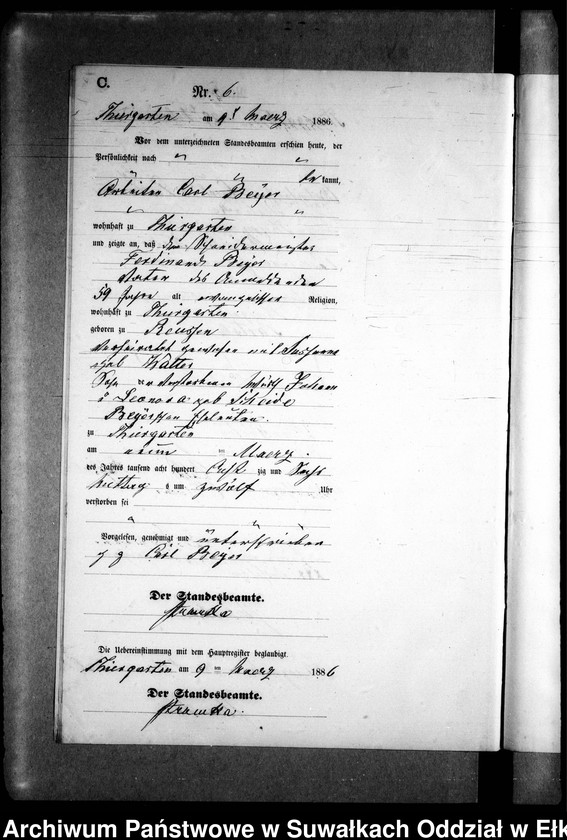 C.
Nr. 6.
Thiergarten am 9t Maerz 1886.
Vor dem unterzeichneten Standesbeamten erschien heute, der
Persönlichkeit nach
be kannt,
Arbeiter Carl Beyer
wohnhaft zu Thiergarten
und zeigte an, daß der Schneidermeister
Ferdinand Beyer
Vater des
59 Jahre alt evangelischer Religion,
wohnhaft zu Thiergarten
geboren zu Reussen
verheirathet gewesen mit Susanna
geb
Sohn der verstorbenen Wirth Johann
u Leonora geb
Beyerschen Eheleute.
zu Thiergarten
am neun ten Maerz
des Jahres tausend acht hundert acht zig und sechs
Mittag s um zwölf Uhr
verstorben sei
Vorgelesen, genehmigt und unterschrieben
g g Carl Beyer
Der Standesbeamte.
Die Uebereinstimmung mit dem Hauptregister beglaubigt.
Thiergarten am 9 ten Maerz 1886
Der Standesbeamte.
Archiwum Państwowe w Suwałkach Oddział w Ełk